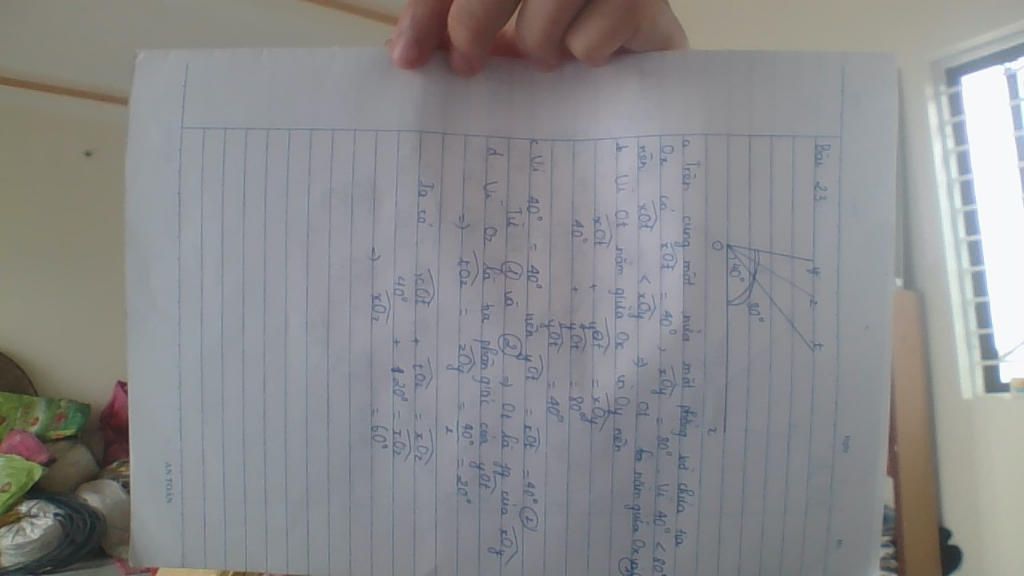 Bài 23
y
z
t
O
40°
80°
x
a Trên cùng một nửa mặt phẳng bờ chứa tia
Ox có xOt = 40°, xOy = 80° Vì 40° < 80°
nên xOt < xOy ⇒ Ot nằm giữa Ox và Oy ①
b Vì Ot nằm giữa Ox và Oy nên
xOt + yOt = xOy
40° + yOt = 80°
yOt = 40°
c Vì 40° = 40° nên yOt = xOt = 40° ②
Từ ① và ② ⇒ Ot là của xOy
d Vì Oz là tia phân giác của yOt
⇒ tOz = xOy/2 = 40°/2 = 20°
Ta có xOt + tOz = xOz
40° + 20° = xOz
⇒ xOz = 60°